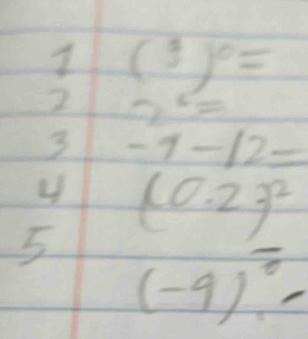 1 (3)⁰ =
2 -2⁶ =
3 -1 - 12 =
4 (0.2)² =
5 (-9)⁰ =